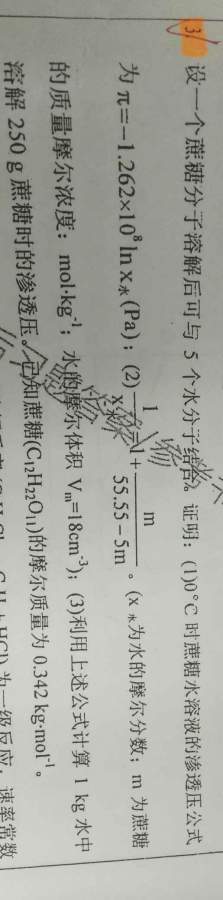 3
设一个蔗糖分子溶解后可与 5 个水分子结合。证明：(1)0°C 时蔗糖水溶液的渗透压公式
为 π=−1.262×10⁸ ln x水(Pa)；(2) 1/x水=1+m/(55.55−5m)。(x水为水的摩尔分数；m 为蔗糖
的质量摩尔浓度：mol·kg⁻¹；水的摩尔体积 Vm=18cm⁻³)；(3)利用上述公式计算 1 kg 水中
溶解 250 g 蔗糖时的渗透压。已知蔗糖(C₁₂H₂₂O₁₁)的摩尔质量为 0.342 kg·mol⁻¹。
HCl)为一级反应，速率常数